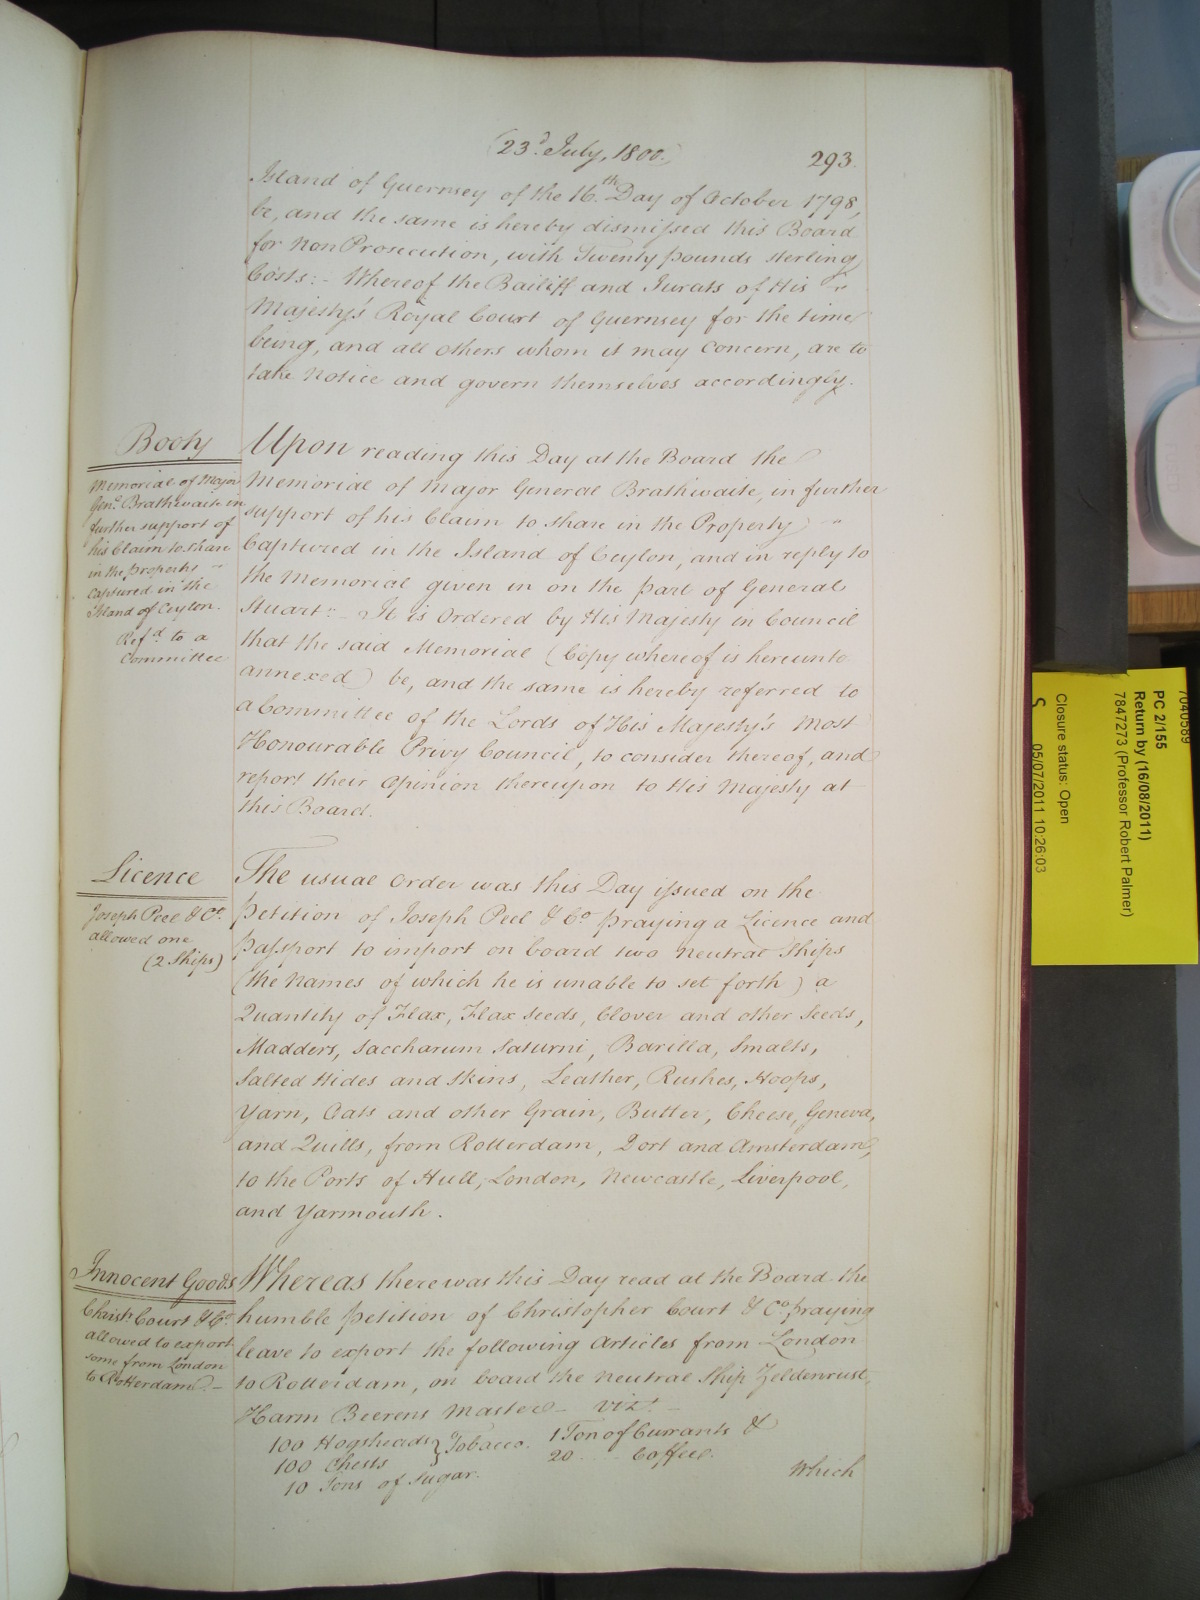 (23d. July, 1800.)
293.
Island of Guernsey of the 16th. Day of October 1798,
be, and the same is hereby dismissed this Board
for Non Prosecution, with Twenty pounds sterling
Costs:- Whereof the Bailiff and Jurats of His
Majesty's Royal Court of Guernsey for the time
being, and all others whom it may Concern, are to
take Notice and govern themselves accordingly.
Booty
Memorial of Major
Genl. Brathwaite in
further support of
his Claim to share
in the property
captured in the
Island of Ceylon.
Refd. to a
Committee
Upon reading this Day at the Board the
Memorial of Major General Brathwaite, in further
support of his Claim to share in the Property
Captured in the Island of Ceylon, and in reply to
the Memorial given in on the part of General
Stuart:- It is Ordered by His Majesty in Council
that the said Memorial (Copy whereof is hereunto
annexed) be, and the same is hereby referred to
a Committee of the Lords of His Majesty's Most
Honourable Privy Council, to consider thereof, and
report their Opinion thereupon to His Majesty at
this Board.
Licence
Joseph Peel & Co.
allowed one
(2 Ships)
The usual Order was this Day issued on the
Petition of Joseph Peel & Co. praying a Licence and
Passport to import on board two Neutral Ships
(the Names of which he is unable to set forth) a
Quantity of Flax, Flax Seeds, Clover and other Seeds,
Madders, Saccharum Saturni, Barilla, Smalts,
Salted Hides and Skins, Leather, Rushes, Hoops,
Yarn, Oats and other Grain, Butter, Cheese, Geneva,
and Quills, from Rotterdam, Dort and Amsterdam,
to the Ports of Hull, London, Newcastle, Liverpool,
and Yarmouth.
Innocent Goods
Christr. Court & Co.
allowed to export
some from London
to Rotterdam.-
Whereas there was this Day read at the Board the
humble Petition of Christopher Court & Co. praying
leave to export the following Articles from London
to Rotterdam, on board the Neutral Ship Zeldenrust,
Harm Beerens Master - Vizt. -
100 Hogsheads } Tobacco. 1 Ton of Currants &
100 Chests 20 .... Coffee.
10 Tons of Sugar.
Which
7040589
PC 2/155
Return by (16/08/2011)
7847273 (Professor Robert Palmer)
Closure status: Open
05/07/2011 10:26:03
S